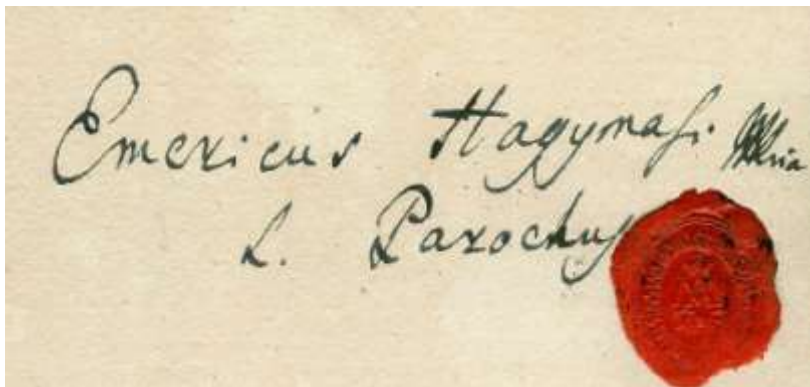 Emericus Hagymasi
L. Parochus